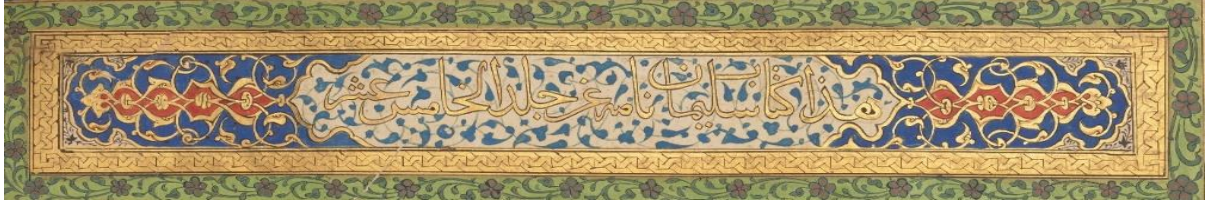 هذا كتاب سليمان نامه عن جلد الخامس عشر